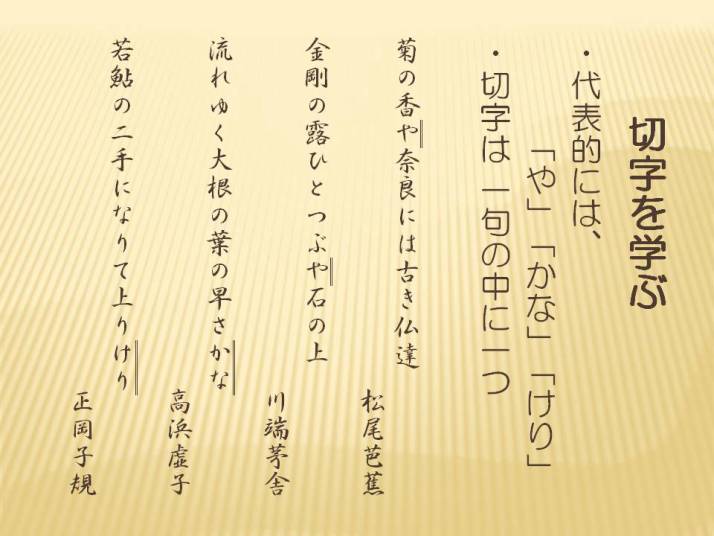 切字を学ぶ
・代表的には、
「や」「かな」「けり」
・切字は 一句の中に一つ
菊の香や奈良には古き仏達
松尾芭蕉
金剛の露ひとつぶや石の上
川端茅舎
流れゆく大根の葉の早さかな
高浜虚子
若鮎の二手になりて上りけり
正岡子規